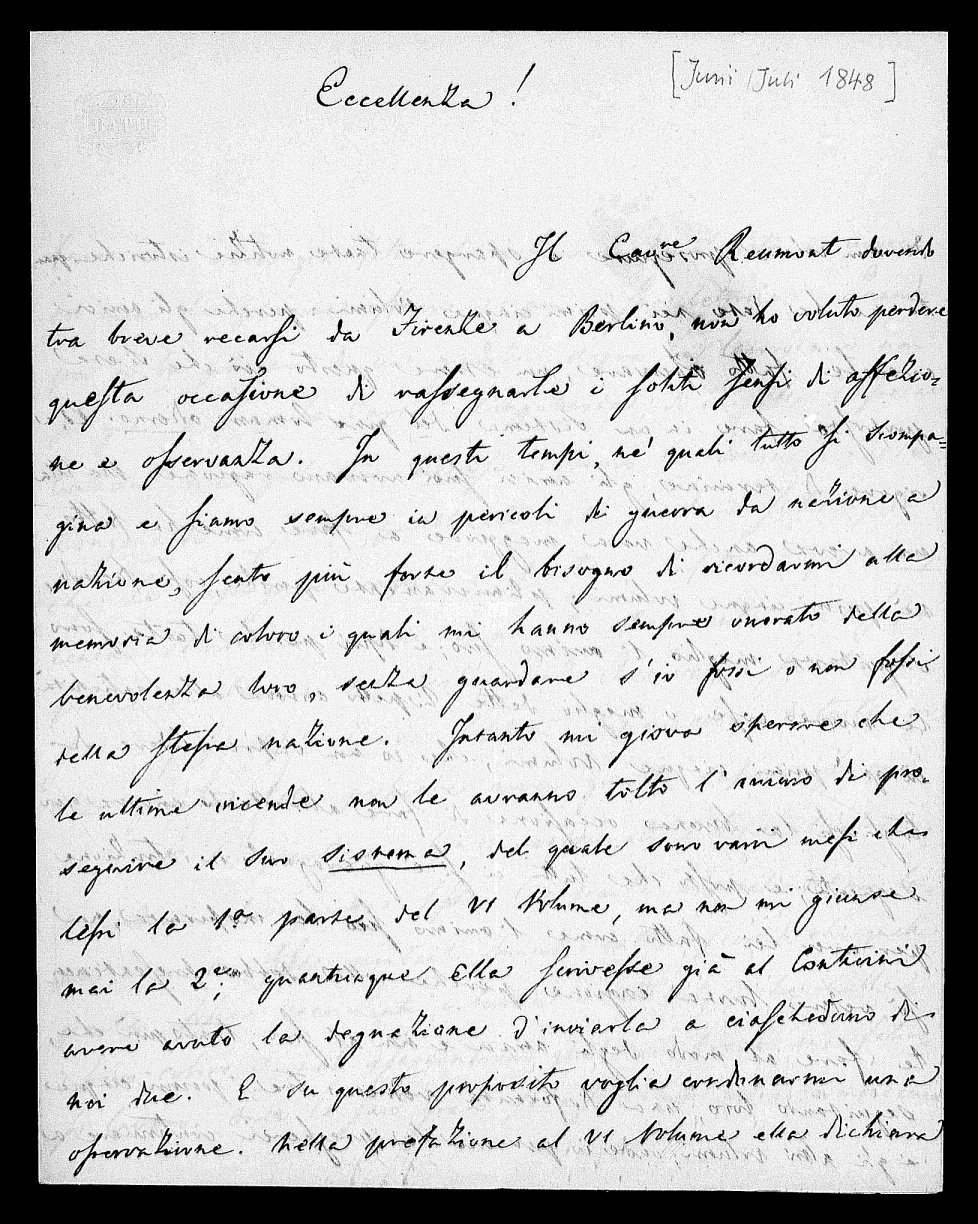 [Juni/Juli 1848]
Eccellenza!
Il Cavre Reumont dovendo
tra breve recarsi da Firenze a Berlino, non ho voluto perdere
questa occasione di rassegnarle i soliti sensi di affezio=
ne e osservanza. In questi tempi, ne' quali tutto si scompa=
gina e siamo sempre in pericoli di guerra da nazione a
nazione, sento più forte il bisogno di ricordarmi alla
memoria di coloro i quali mi hanno sempre onorato della
benevolenza loro, senza guardare s'io fossi o non fossi
della stessa nazione. Intanto mi giova sperare che
le ultime vicende non le avranno tolto l'animo di pro=
seguire il suo sistema, del quale sono varii mesi che
lessi la 1a parte del VI Volume, ma non mi giunse
mai la 2a, quantunque Ella scrivesse già al Conticini
avere avuto la degnazione d'inviarla a ciascheduno di
noi due. E su questo proposito voglia condonarmi una
osservazione. Nella prefazione al VI Volume ella dichiara